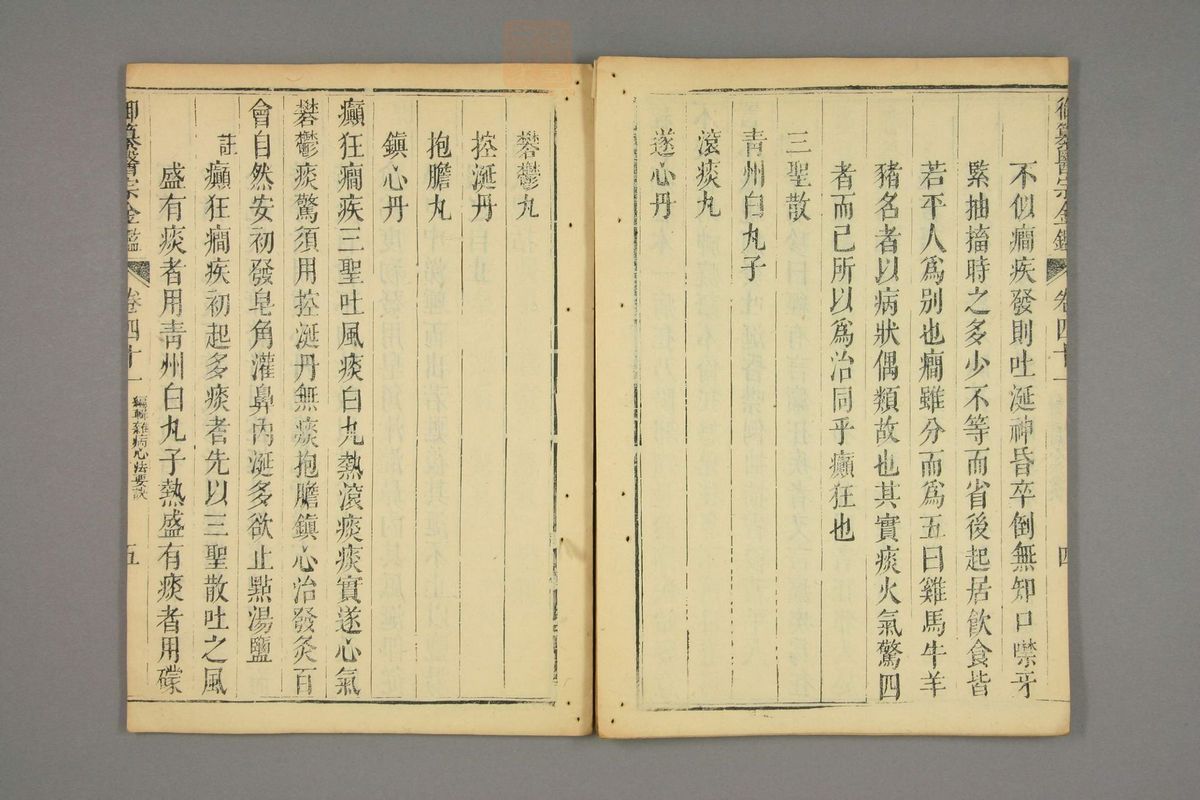 御纂醫宗金鑑 卷四十一 四
不似癎疾發則吐涎神昏卒倒無知口噤牙
緊抽搐時之多少不等而省後起居飲食皆
若平人爲别也癎雖分而爲五曰雞馬牛羊
豬名者以病狀偶類故也其實痰火氣驚四
者而已所以爲治同乎癲狂也
三聖散
青州白丸子
滾痰丸
遂心丹
礬鬱丸
控涎丹
抱膽丸
鎮心丹
癲狂癎疾三聖吐風痰白丸熱滾痰痰實遂心氣
礬鬱痰驚須用控涎丹無痰抱膽鎮心治發灸百
會自然安初發皂角灌鼻内涎多欲止點湯鹽
註癲狂癎疾初起多痰者先以三聖散吐之風
盛有痰者用青州白丸子熱盛有痰者用礞
御纂醫宗金鑑 卷四十一 編輯雜病心法要訣 五